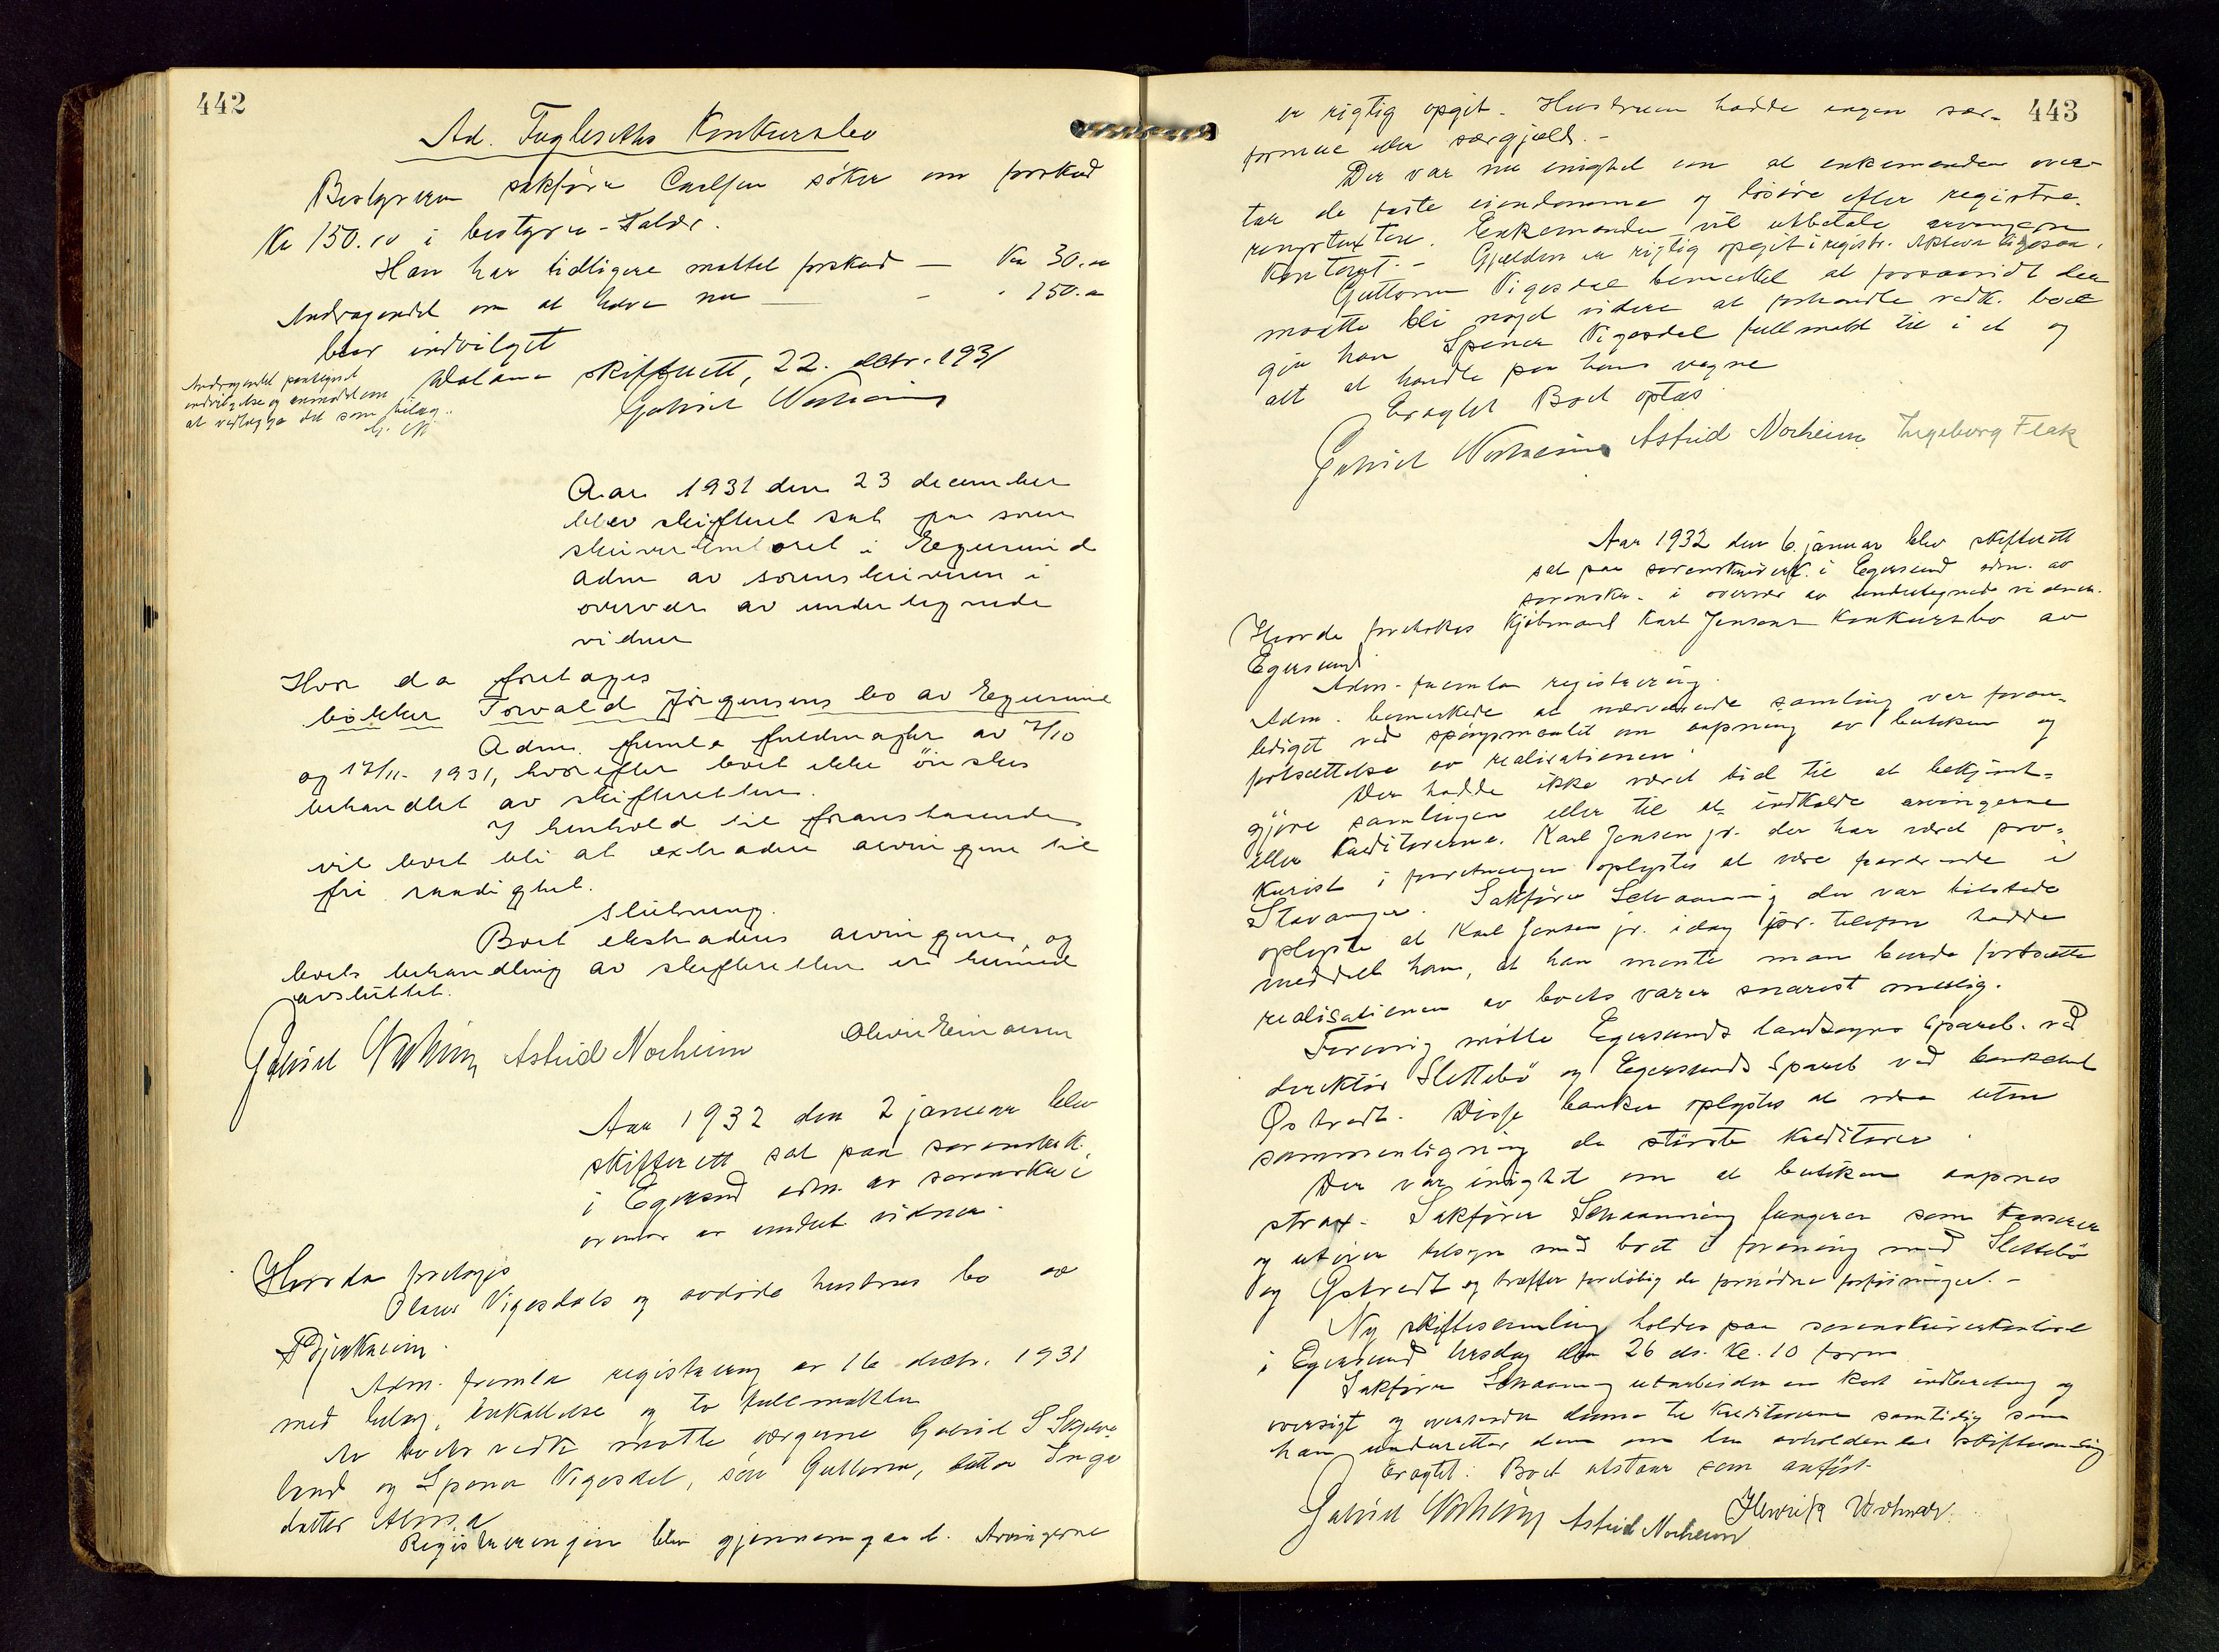 442
Ad. Fugleseths Konkursbo
Bestyreren sakfører Carlsen söker om forskud
Kr 150.00 i bestyrer-salær.
Han har tidligere mottat forskud — Kr 30.00
Andragendet om at have nu — - " 150.00
blev indvilget
Dalane skifterett, 22. decbr. 1931
Gabriel Norheim
Andragendet paategnet
indvilgelse og anmodet om
at vedlægge det som bilag..
G. N.
Aar 1931 den 23 december
blev skifteret sat paa soren
skriverkontoret i Egersund
adm av sorenskriveren i
overvær av undertegnede
vidner
Hvor da foretages
bökker Torvald Jörgensens bo av Egersund
Adm. fremla fuldmagter av 7/10
og 17/11- 1931, hvorefter boet ikke önskes
behandlet av skifteretten.
I henhold til foranstaaende
vil boet bli at extradere arvingene til
fri raadighet.
Slutning.
Boet ekstraderes arvingene, og
boets behandling av skifteretten er hermed
avsluttet.
Gabriel Norheim Astrid Norheim Olivia Einarsen
Aar 1932 den 2 januar blev
skifterett sat paa sorenskrk.
i Egersund adm. av sorenskr i
overvær av undert vidner.
Hvorda foretages
Olaus Vigesdals og avdöde hustrus bo av
Bjerkreim.
Adm. fremla registrering av 16 decbr. 1931
med bilag, innkallelse og to fullmakter
Av boets vedk møtte værgerne Gabriel S Skjæve
land og Spener Vigesdal, sön Guttorm, datter Inga
datter Alma
Registreringen blev gjennemgaad. Arvingerne
443
er rigtig opgit. Hustruen hadde ingen sær-
formue eller særgjæld. -
Der var nu enighet om at enkemanden over-
tar de faste eiendomme og lösöre efter registre-
ringstaxten. Enkemanden vil utbetale arvingerne
kontant. - Gjælden er rigtig opgit i registr.
Guttorm Vigesdal bemerket at forsaavidt der
maatte bli noget videre at forhandle vedk. boet
gir han Spener Vigesdal fullmakt til i et og
alt at handle paa hans vegne
Eragtet Boet optas
Gabriel Norheim Astrid Norheim Ingeborg Flak
Aar 1932 den 6 januar blev skifterett
sat paa sorenskriverk. i Egersund adm. av
sorenskr. i overvær av undertegnede vidner.
Hvorda foretokes Kjöbmand Karl Jensens konkursbo av
Egersund
Adm. fremla registrering.
Adm. bemerkede at nærværende samling var foran-
lediget ved spörgsmaalet om aapning av butikken og
fortsættelse av realisationen.
Der hadde ikke været tid til at bekjent-
gjöre samlingen eller til at indkalde arvingerne
eller kreditorerne. Karl Jensen jr. der har været pro-
kurist i forretningen oplystes at være fraværende i
Stavanger. Sakförer Schaanning der var tilstede
oplyste at Karl Jensen jr. idag pr. telefon hadde
meddelt ham, at han mente man burde fortsætte
realisationen av boets varer snarest mulig.
Forövrig mötte Egersunds landsogns Spareb. ved
direktör Slettebö og Egersunds Spareb ved bankchef
Östredt. Disse banker oplystes at være uten
sammenligning de störste kreditorer.
Der var enighet om at butiken aapnes
strax. Sakförer Schaanning fungerer som kasserer
og utöver tilsyn med boet i forening med Slettebö
og Östredt og træffer forelöbig de fornödne forföininger. -
Ny skiftesamling holdes paa sorenskriverkontoret
i Egersund tirsdag den 26 ds. kl. 10 form
Sakförer Schaanning utarbeider en kort indberetning og
oversigt og oversender denne til kreditorerne samtidig som
han underretter dem om den avholdendes skiftesamling
Eragtet: Boet utstaar som anfört.
Gabriel Norheim Astrid Norheim Henrik